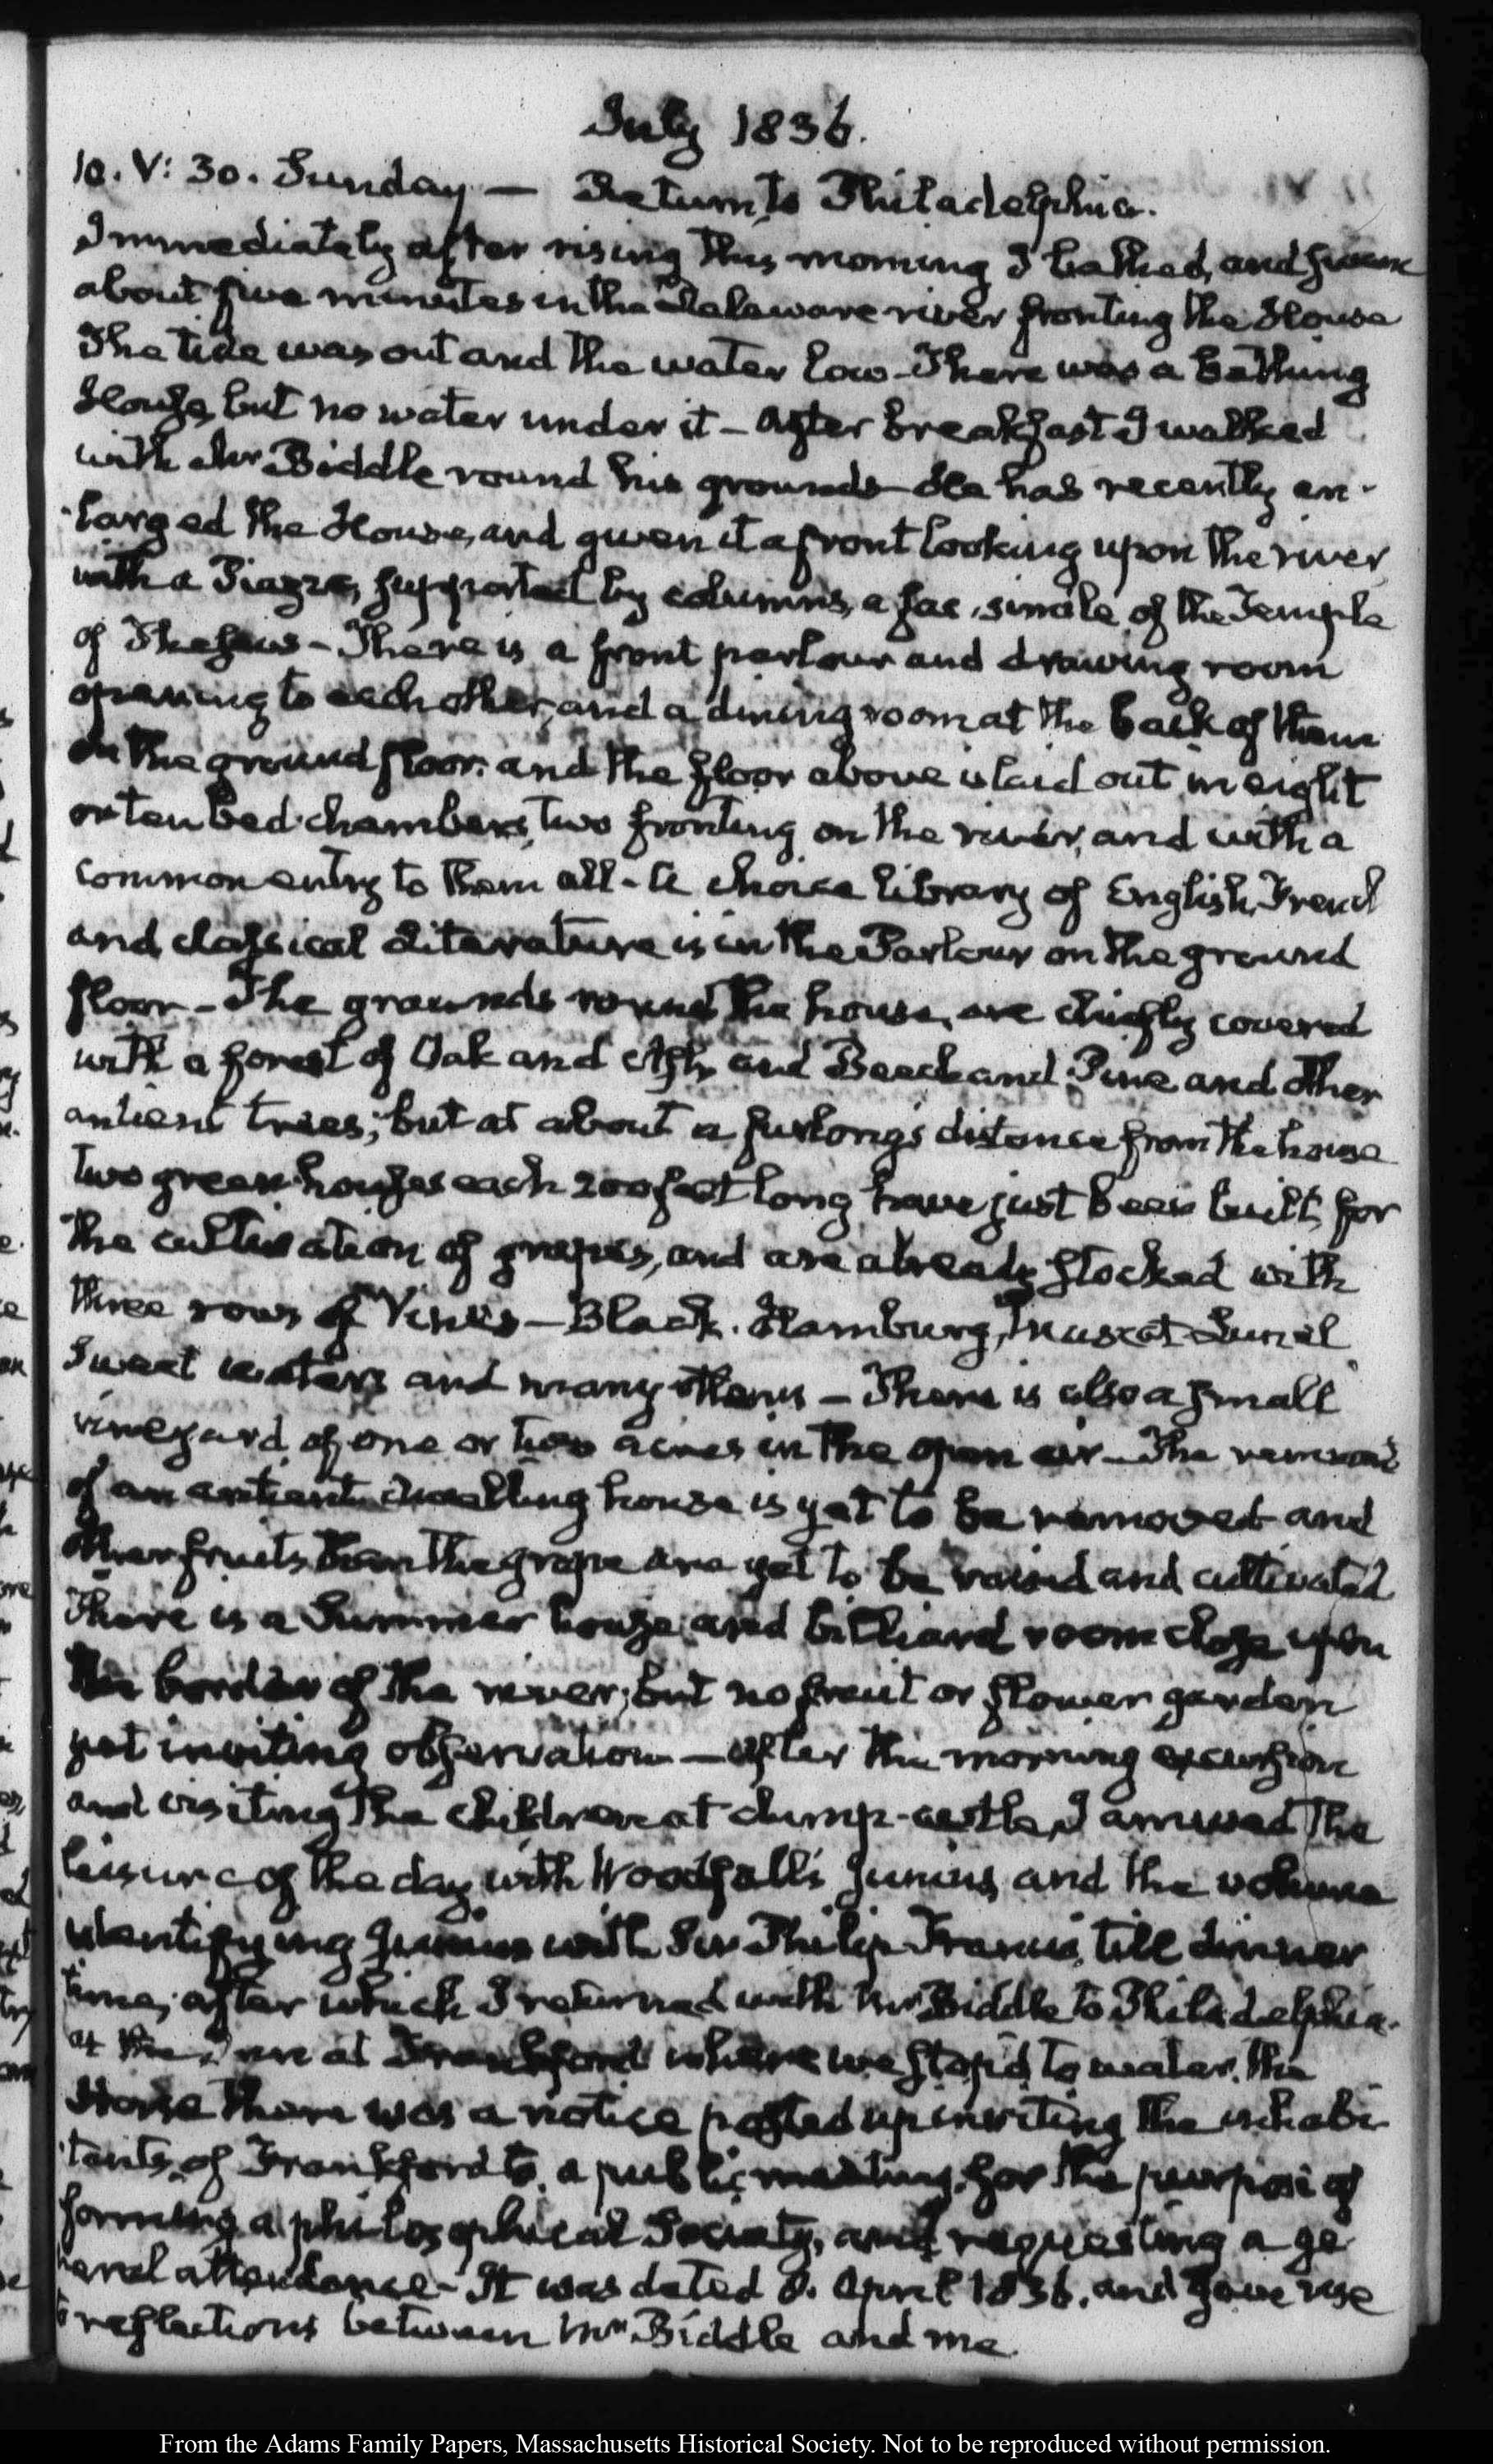 July 1836.
10. V: 30. Sunday — Return to Philadelphia.
Immediately after rising this morning I bathed, and swam
about five minutes in the Delaware river fronting the House
The tide was out and the water low – There was a bathing
House, but no water under it – After breakfast I walked
with Mr Biddle round his grounds – He has recently en-
larged the House, and given it a front looking upon the river
with a Piazza, supported by columns, a fac simile of the Temple
of Theseus – There is a front parlour and drawing room
opening to each other, and a dining room at the back of them
on the ground floor: and the floor above is laid out in eight
or ten bed chambers, two fronting on the river, and with a
common entry to them all – A choice library of English, French
and classical Literature is in the Parlour on the ground
floor – The grounds round the house, are chiefly covered
with a forest of Oak and Ash, and Beech and Pine and other
antient trees; but at about a furlong's distance from the house
two green-houses each 200 feet long have just been built, for
the cultivation of grapes, and are already stocked with
three rows of Vines – Black. Hamburg, Muscat Lunel
Sweet waters and many others – There is also a small
vineyard of one or two acres in the open air – The
of an antient dwelling house is yet to be removed and
other fruits than the grape are yet to be raised and cultivated
There is a Summer house and billiard room close upon
the border of the river; but no fruit or flower garden
yet inviting observation — After this morning excursion
and visiting the children at I amused the
leisure of the day with Woodfall's Junius and the volume
identifying Junius with Sir Philip Francis, till dinner
time, after which I returned with Mr Biddle to Philadelphia.
at the Inn at Frankford where we stop'd to water the
Horse there was a notice posted up inviting the inhabi-
tants of Frankford to a public meeting, for the purpose of
forming a philosophical Society, and requesting a ge-
neral attendance – It was dated 8. April 1836. and gave rise
to reflections between Mr Biddle and me.
From the Adams Family Papers, Massachusetts Historical Society. Not to be reproduced without permission.